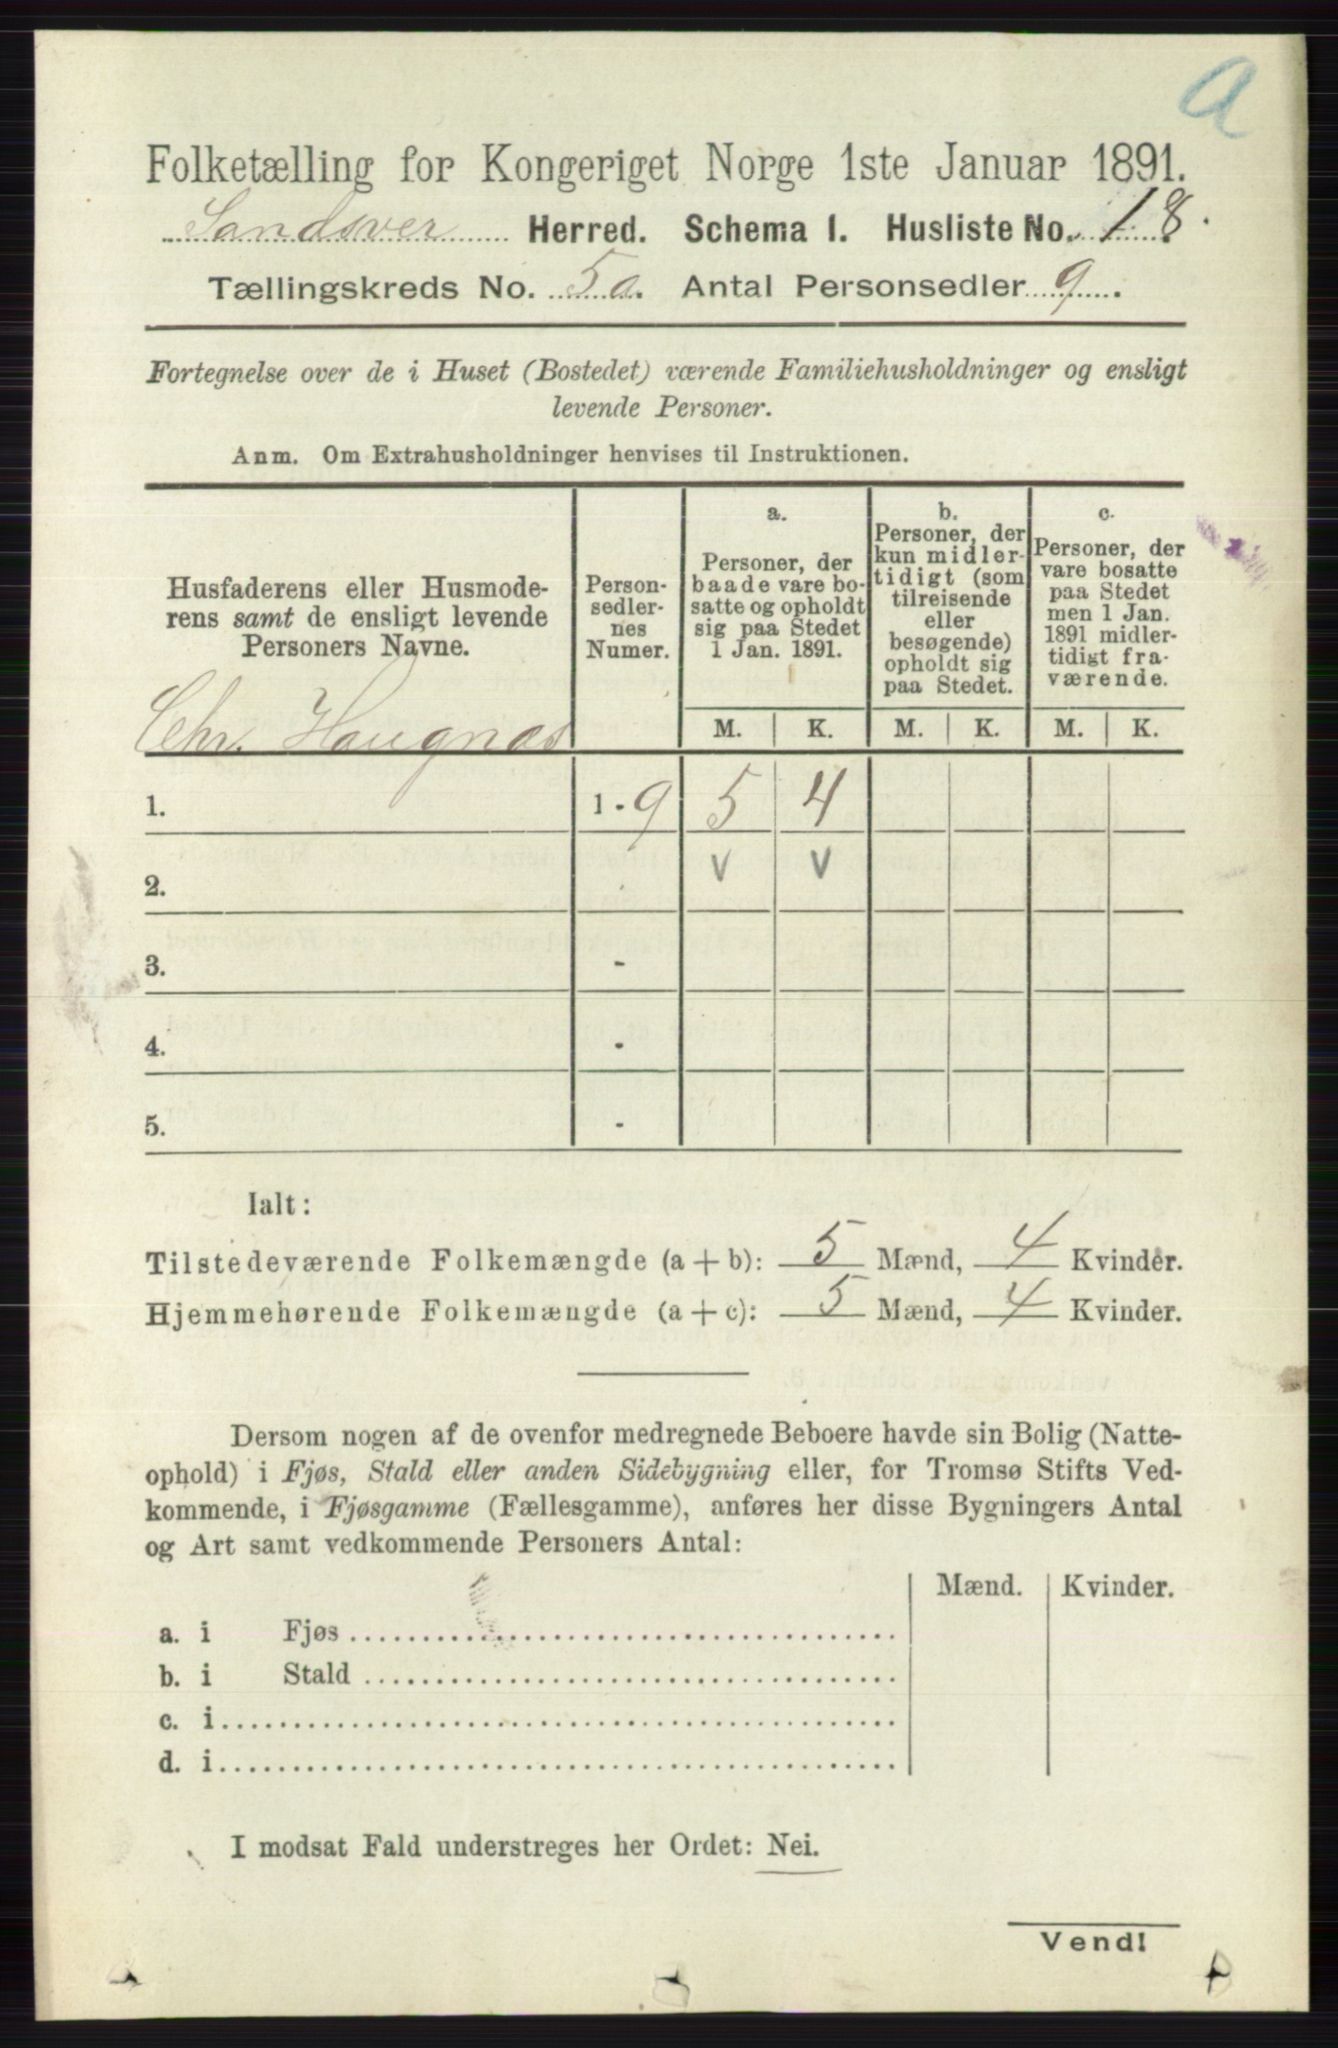 a
Folketælling for Kongeriget Norge 1ste Januar 1891.
Sandsver Herred. Schema I. Husliste No. 18.
Tællingskreds No. 5a. Antal Personsedler 9.
Fortegnelse over de i Huset (Bostedet) værende Familiehusholdninger og ensligt
levende Personer.
Anm. Om Extrahusholdninger henvises til Instruktionen.
Husfaderens eller Husmode-
rens samt de ensligt levende
Personers Navne.
Person-
sedler-
nes
Numer.
a.
Personer, der
baade vare bo-
satte og opholdt
sig paa Stedet
1 Jan. 1891.
b.
Personer, der
kun midler-
tidigt (som
tilreisende
eller
besøgende)
opholdt sig
paa Stedet.
c.
Personer, der
vare bosatte
paa Stedet
men 1 Jan.
1891 midler-
tidigt fra-
værende.
M. K. M. K. M. K.
Chr. Haugnæs
1. 1 - 9 5 4
2. v v
3. -
4. -
5. -
Ialt:
Tilstedeværende Folkemængde (a + b): 5 Mænd, 4 Kvinder.
Hjemmehørende Folkemængde (a + c): 5 Mænd, 4 Kvinder.
Dersom nogen af de ovenfor medregnede Beboere havde sin Bolig (Natte-
ophold) i Fjøs, Stald eller anden Sidebygning eller, for Tromsø Stifts Ved-
kommende, i Fjøsgamme (Fællesgamme), anføres her disse Bygningers Antal
og Art samt vedkommende Personers Antal:
Mænd. Kvinder.
a. i Fjøs
b. i Stald
c. i
d. i
I modsat Fald understreges her Ordet: Nei.
Vend!